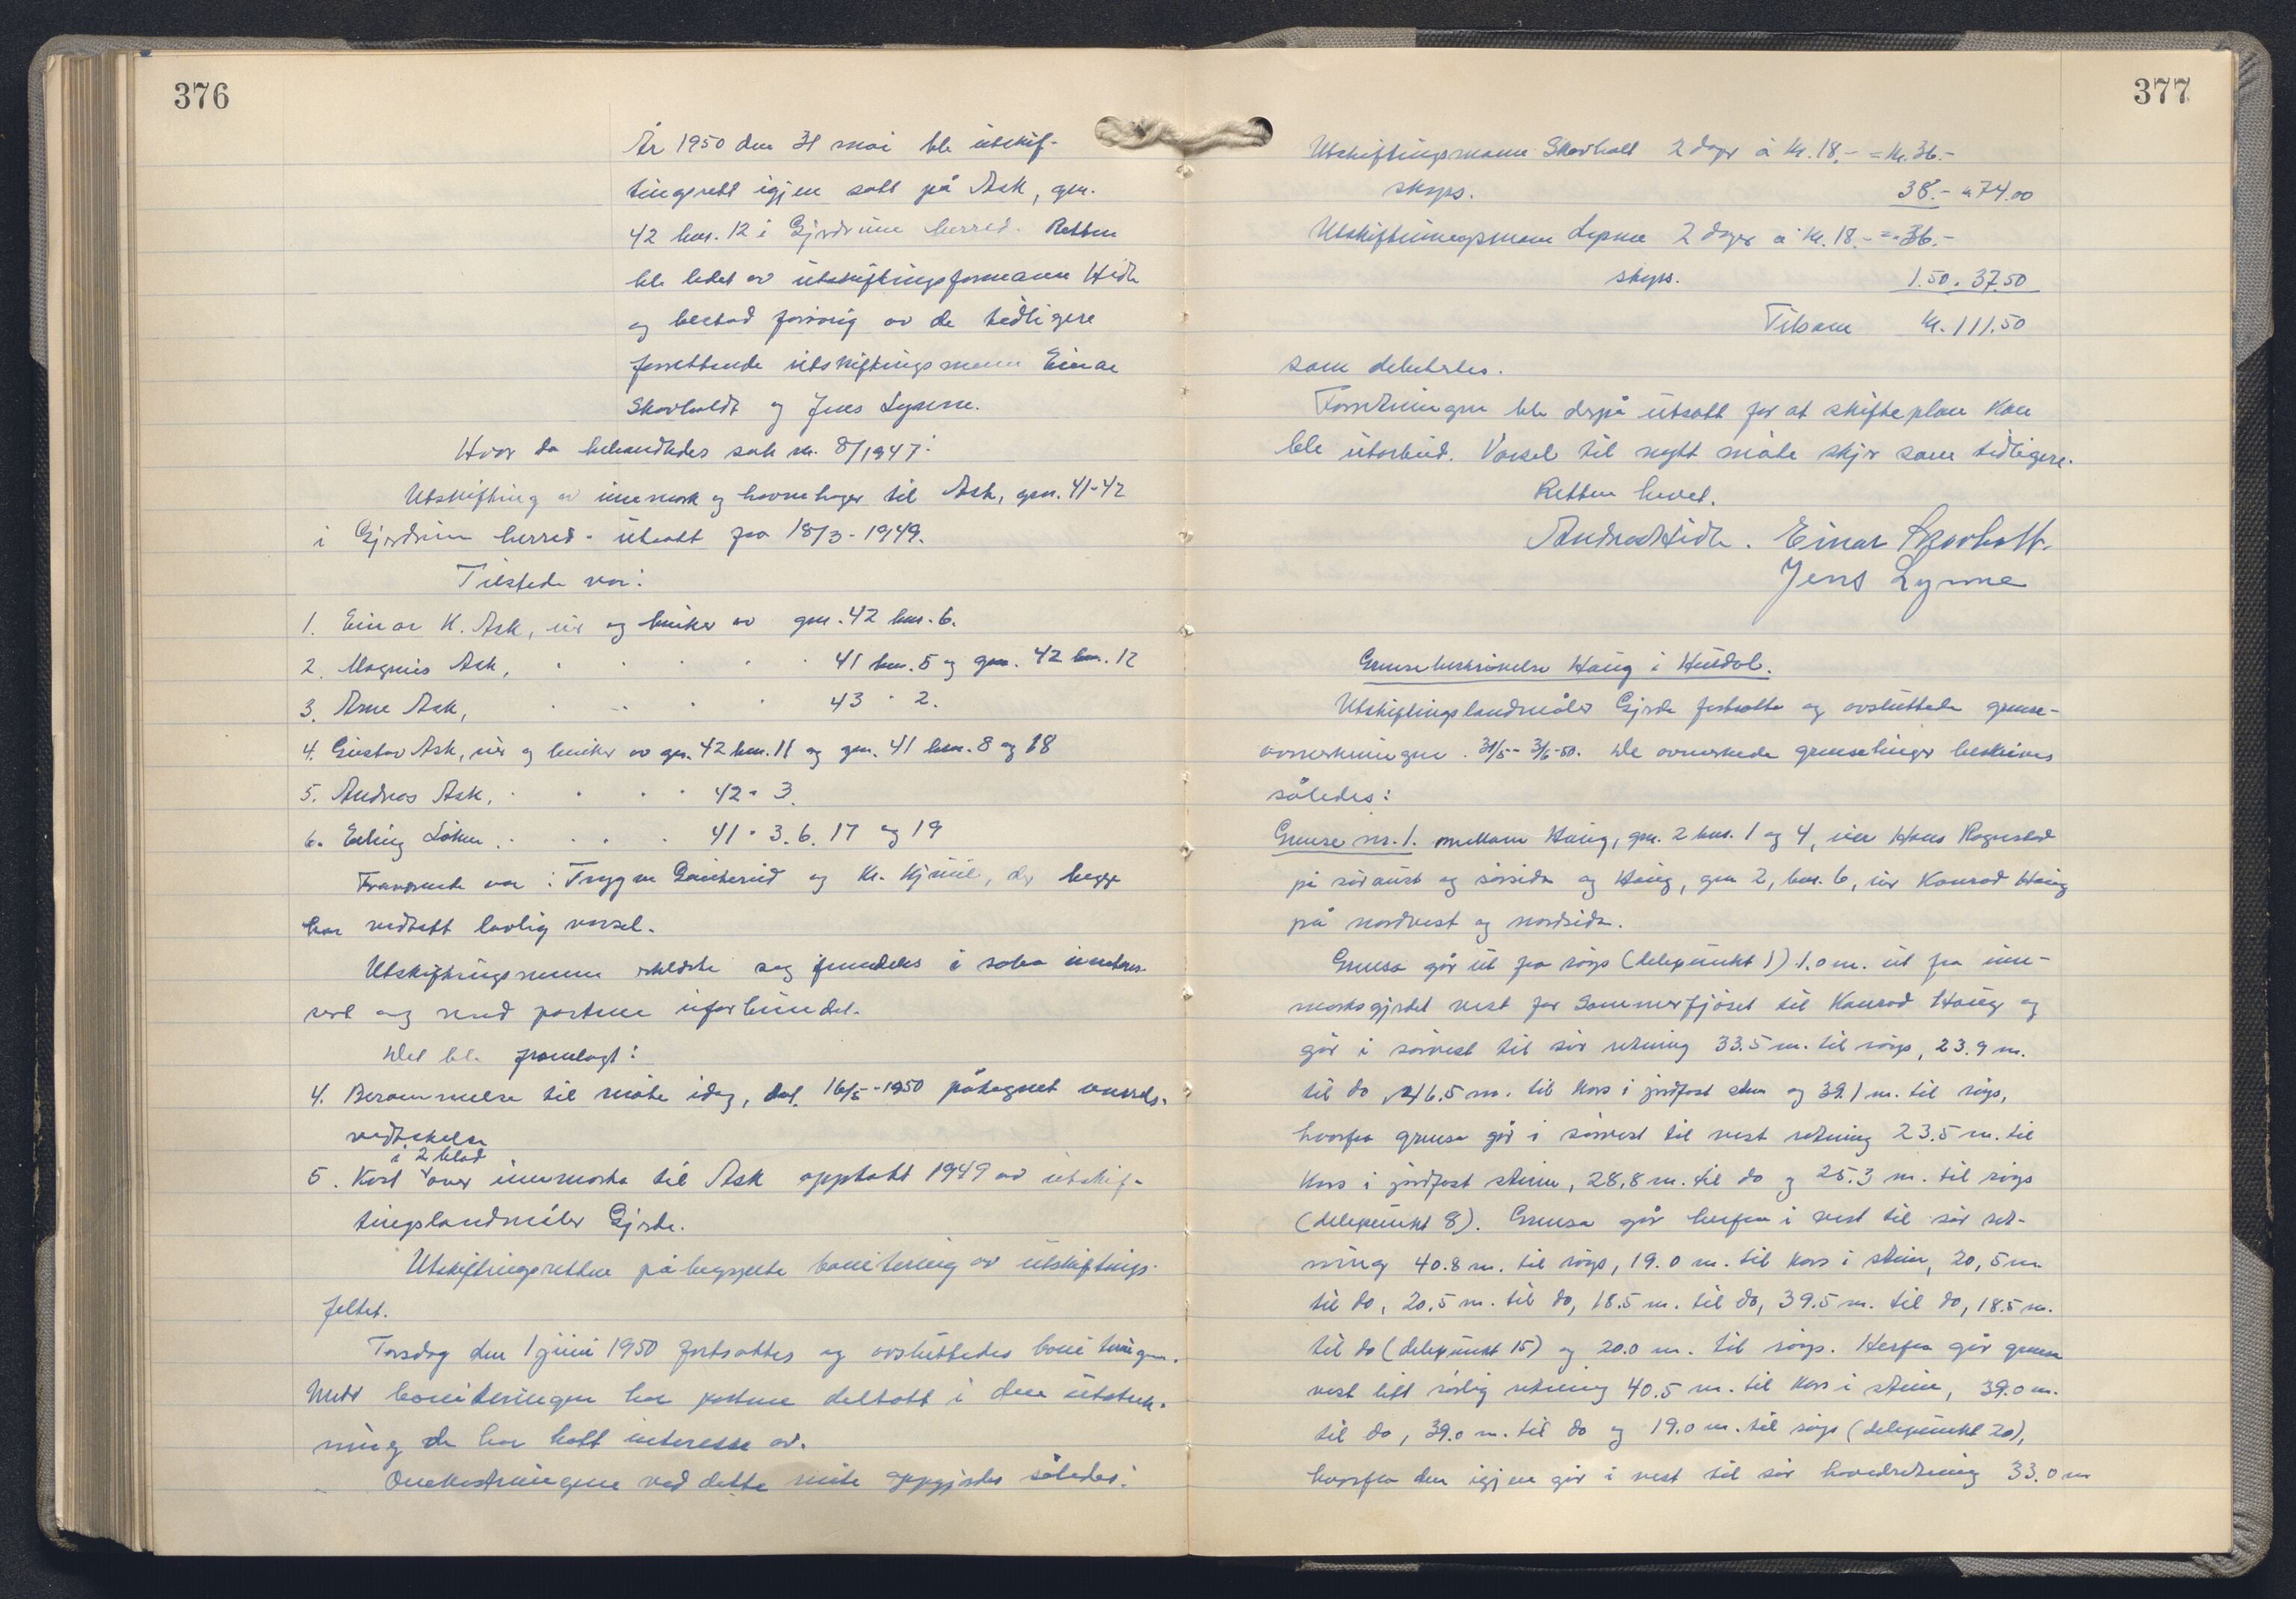 376
År 1950 den 31 mai ble utskif-
tingsrett igjen satt på Ask, gnr.
42 bnr. 12 i Gjerdrum herred. Retten
ble ledet av utskiftingsformann Hidle
og bestod forøvrig av de tidligere
forrettende utskiftingsmenn Einar
Skovholdt og Jens Lynne.
Hvor da behandledes sak nr. 8/1947:
Utskifting av innmark og havnehager til Ask, gnr. 41-42
i Gjerdrum herred - utsatt fra 18/3-1949.
Tilstede var:
1. Einar K. Ask, eier og bruker av gnr. 42 bnr. 6.
2. Magnus Ask, " " " " " 41 bnr. 5 og gnr. 42 bnr. 12
3. Arne Ask, " " " " 43 " 2.
4. Gustav Ask, eier og bruker av gnr. 42 bnr. 11 og gnr. 41 bnr. 8 og 18
5. Andreas Ask, " " " " 42 " 3.
6. Erling Løken, " " " " 41 " 3. 6. 17 og 19
Fraværende var: Trygve og Kr. der begge
har vedtatt lovlig varsel.
Utskiftingsmennene erklærte seg fremdeles i saken uinteres-
sert og med partene uforbundet.
Det ble framlagt:
4. Berammelse til møte idag, dat. 16/5-1950 påtegnet varsels-
vedtakelse
i 2 blad
5. Kart over innmarka til Ask opptatt 1949 av utskif-
tingslandmåler Gjerde.
Utskiftingsretten påbegynte bonitering av utskiftings-
feltet.
Torsdag den 1 juni 1950 fortsattes og avsluttedes boniteringen.
Under boniteringen har partene deltatt i den utstrek-
ning de har hatt interesse av.
Omkostningene ved dette møte oppgjordes således:
377
Utskiftingsmann Skovholt 2 dager à kr. 18,- = kr. 36.-
skyss. 38.- " 74.00
Utskiftningsmann Lynne 2 dager à kr. 18.- = " 36.-
skyss. 1.50 " 37.50
Tilsam kr. 111.50
som debiteres.
Forretningen ble derpå utsatt for at skifteplan kan
ble utarbeid. Varsel til nytt møte skjer som tidligere.
Retten hevet.
Andreas Hidle. Einar Skovholt.
Jens Lynne
Grensebeskrivelse Haug i Hurdal.
Utskiftingslandmåler Gjerde fortsatte og avsluttede grense-
avmerkningene 31/5 - 3/6-50. De avmerkede grenselinjer beskrives
således:
Grense nr. 1. mellom Haug, gnr. 2 bnr. 1 og 4, eier Hans Rognstad
på søraust og sørsida og Haug, gnr 2, bnr. 6, eier Konrad Haug
på nordvest og nordsida.
Grensa går ut fra røys (delepunkt 1) 1.0 m. ut fra inn-
marksgjerdet vest for Sommerfjøset til Konrad Haug og
går i sørvest til sør retning 33.5 m. til røys, 23.9 m.
til do, 46.5 m. til kors i jordfast sten og 39.1 m. til røys,
hvorfra grensa går i sørvest til vest retning 23.5 m. til
kors i jordfast stein, 28,8 m. til do og 25.3 m. til røys
(delepunkt 8). Grensa går herfra i vest til sør ret-
ning 40.8 m. til røys, 19.0 m. til kors i stein, 20,5 m
til do, 20.5 m. til do, 18.5 m. til do, 39.5 m. til do, 18.5 m.
til do (delepunkt 15) og 20.0 m. til røys. Herfra går grensa
vest litt sørlig retning 40.5 m. til kors i stein, 39.0 m.
til do, 39.0 m. til do og 19.0 m. til røys (delepunkt 20),
hvorfra den igjen går i vest til sør hovedretning 33.0 m